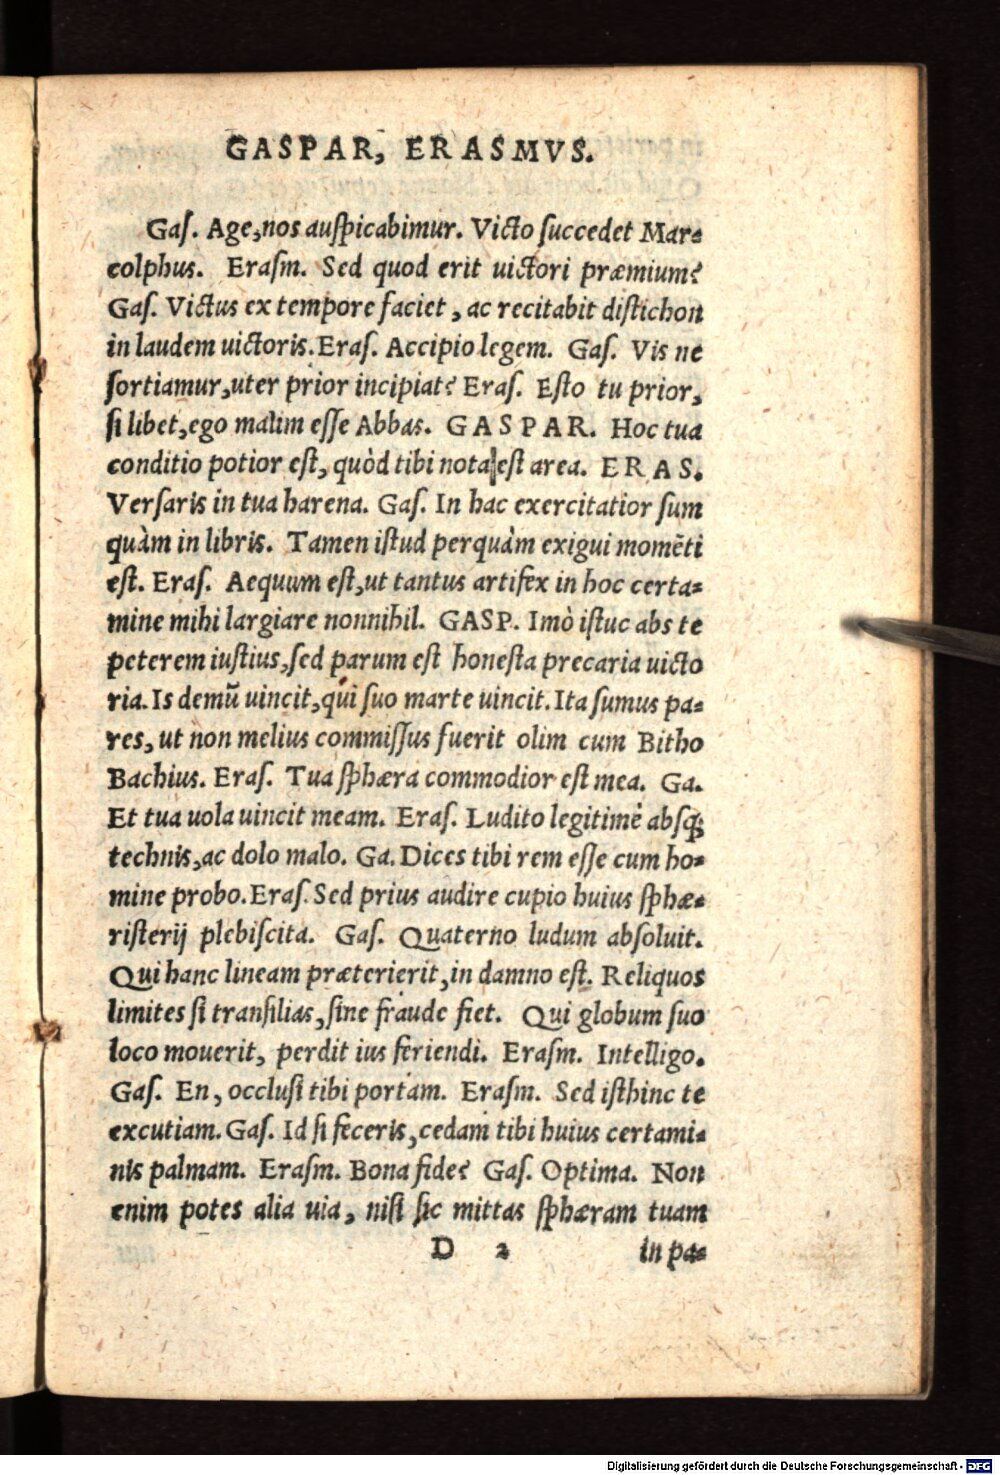 GASPAR, ERASMVS.
Gaſ. Age, nos auſpicabimur. Victo ſuccedet Mar-
colphus. Eraſm. Sed quod erit uictori præmium?
Gaſ. Victus ex tempore faciet, ac recitabit diſtichon
in laudem uictoris. Eraſ. Accipio legem. Gaſ. Vis ne
ſortiamur, uter prior incipiat? Eraſ. Eſto tu prior,
ſi libet, ego malim eſſe Abbas. GASPAR. Hoc tua
conditio potior eſt, quòd tibi nota eſt area. ERAS.
Verſaris in tua harena. Gaſ. In hac exercitatior ſum
quàm in libris. Tamen iſtud perquàm exigui momẽti
eſt. Eraſ. Aequum eſt, ut tantus artifex in hoc certa-
mine mihi largiare nonnihil. GASP. Imò iſtuc abs te
peterem iuſtius, ſed parum eſt honeſta precaria uicto
ria. Is demũ uincit, qui ſuo marte uincit. Ita ſumus pa-
res, ut non melius commiſſus fuerit olim cum Bitho
Bachius. Eraſ. Tua ſphæra commodior eſt mea. Ga.
Et tua uola uincit meam. Eraſ. Ludito legitimè abſq;
technis, ac dolo malo. Ga. Dices tibi rem eſſe cum ho-
mine probo. Eraſ. Sed prius audire cupio huius ſphæ-
riſterij plebiſcita. Gaſ. Quaterno ludum abſoluit.
Qui hanc lineam præterierit, in damno eſt. Reliquos
limites ſi tranſilias, ſine fraude fiet. Qui globum ſuo
loco mouerit, perdit ius feriendi. Eraſm. Intelligo.
Gaſ. En, occluſi tibi portam. Eraſm. Sed iſthinc te
excutiam. Gaſ. Id ſi feceris, cedam tibi huius certami-
nis palmam. Eraſm. Bona fide? Gaſ. Optima. Non
enim potes alia uia, niſi ſic mittas ſphæram tuam
D 2 in pa-
Digitalisierung gefördert durch die Deutsche Forschungsgemeinschaft - DFG